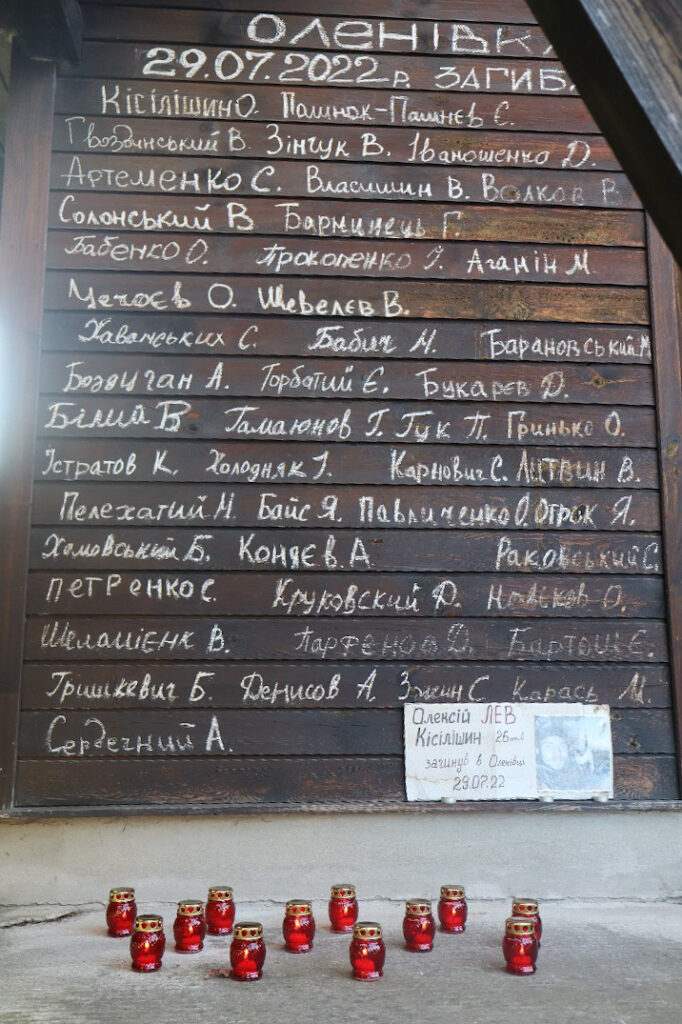 ОЛЕНІВКА
29.07.2022 р. ЗАГИБ
Кісілішин О. Паминок-Памнєв Є.
Гвоздинський В. Зінчук В. Іваношенко Д.
Артеменко С. Власишин В. Волков В
Солонський В Барминець Г.
Бабенко О. Прокопенко Аганін М.
Чечоєв О. Шевелєв В.
Хаванських С. Бабич М. Барановський М
Боздуган А. Горбатий Є. Букарєв Д.
Білиа В Гамаюнов Г. Гук П. Гринько О.
Істратов К. Холодняк Карнович С. Литвин В.
Пелехатий М. Байс Я. Павличенко О. Отрок Я.
Хомовський Б. Коняєв. А Раковський С.
ПЕТРЕНКО С. Круковский Д. О.
В. Парфенов Д. Є.
Гришкевич Б. Денисов А. С Карась М.
Сердечний А.
Олексій ЛЕВ
Кісілішин
загинув в Оленівці
29.07.22